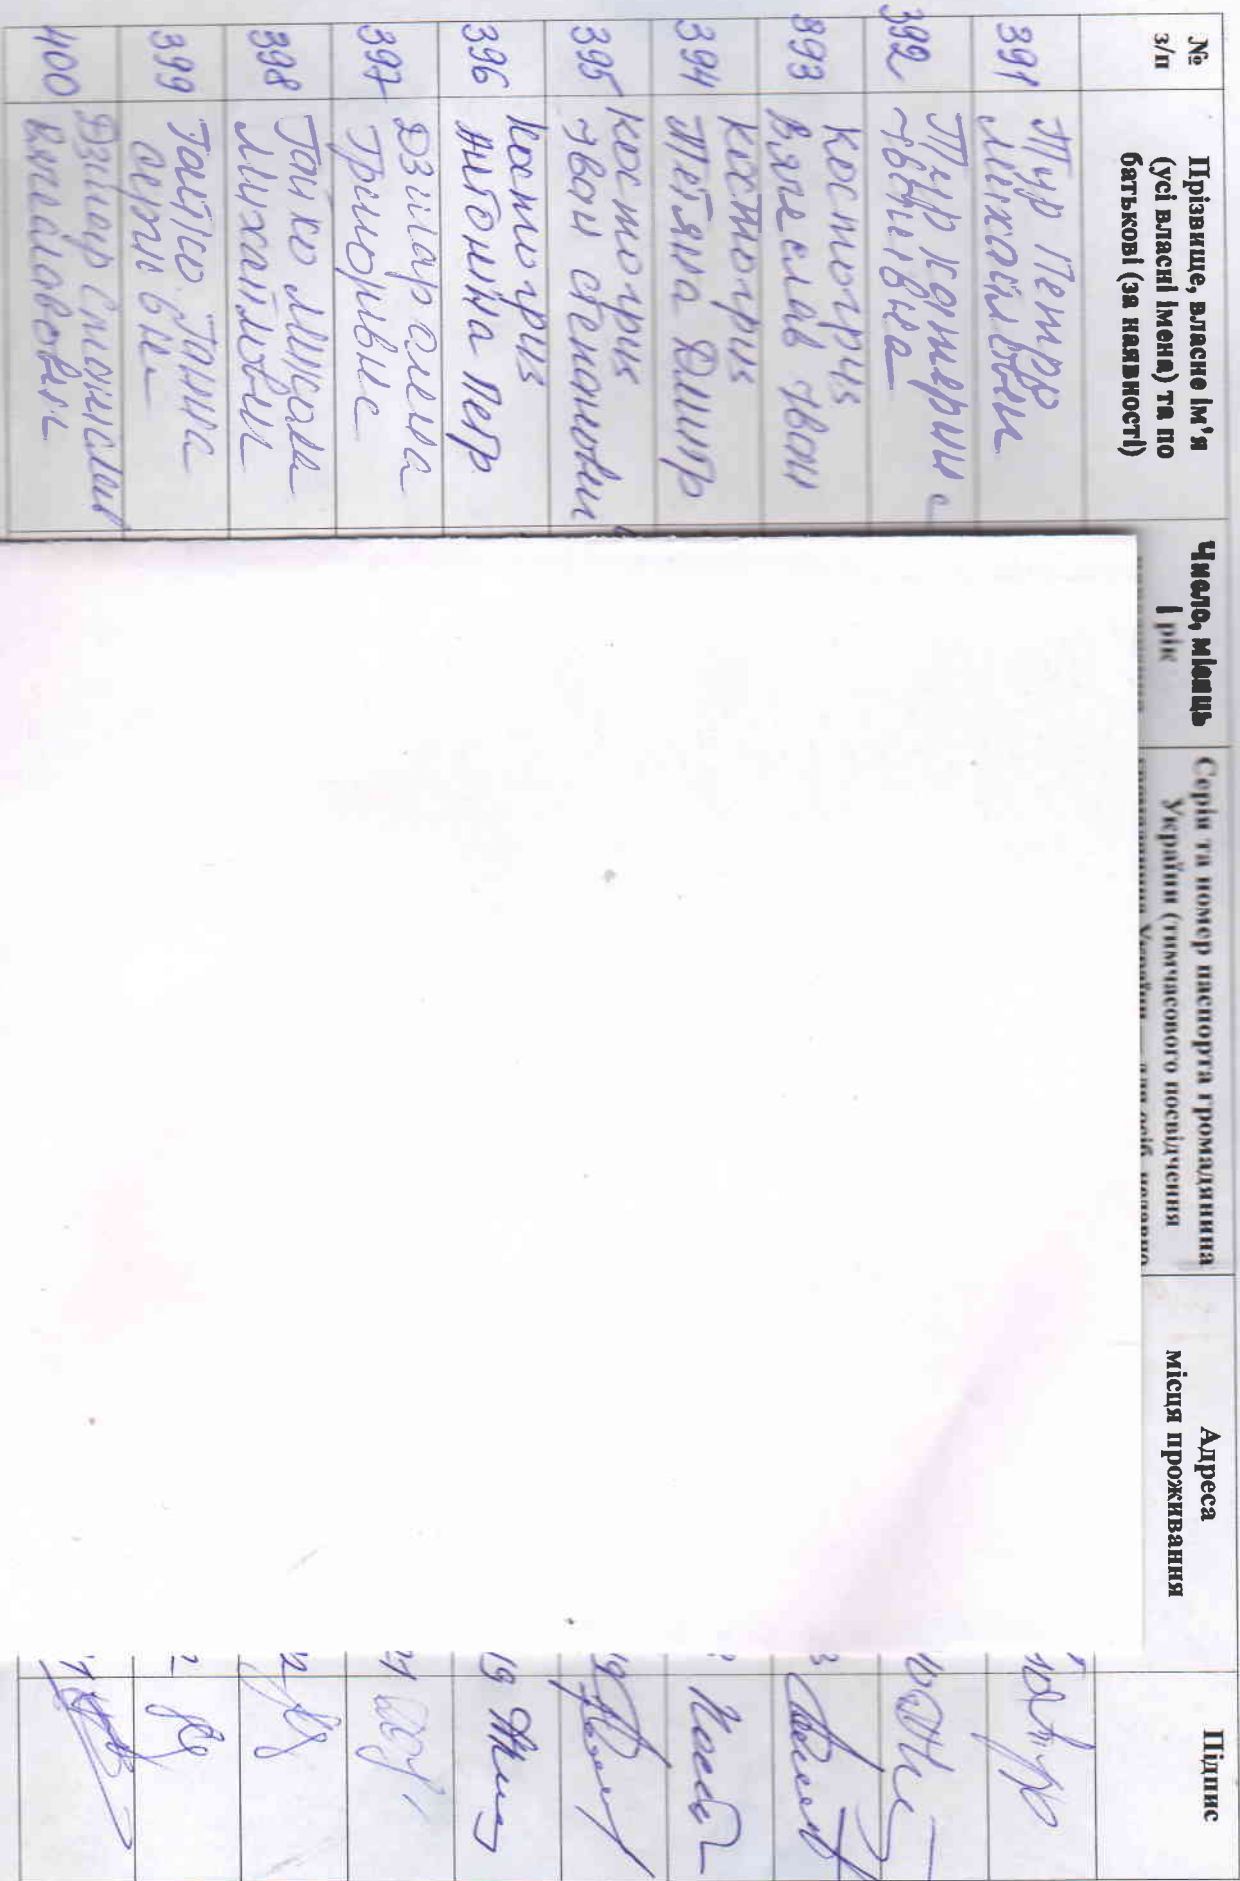 №
з/п
Прізвище, власне ім'я
(усі власні імена) та по
батькові (за наявності)
Число, місяць
і рік
Серія та номер паспорта громадянина
України (тимчасового посвідчення
Адреса
місця проживання
Підпис
391
Тур Петро
Михайлови
392
Тур Катерин
393
Костогриз
Вячеслав Іван
394
Костогриз
Тетяна Дмитр
395
Костогриз
Іван Степанович
396
Костогриз
Антоніна Петр
397
Дзицюр Олена
Григорівнс
398
Гайко Микола
Михайлови
399
Гайко Ганна
400
Дзицюр Станіслав
Вячеславович